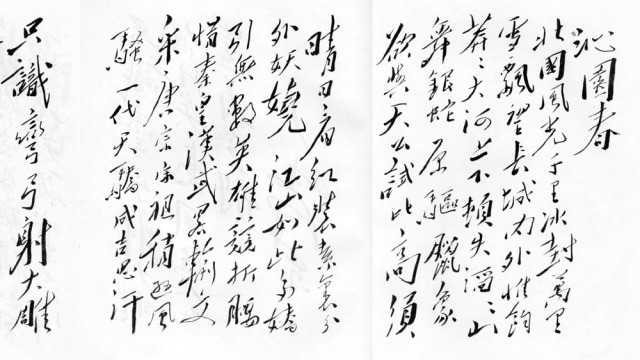 沁園春
北國風光千里冰封萬里
雪飄望長城内外惟餘
莽々大河上下頓失滔々山
舞銀蛇原驅臘象
欲與天公試比高須
晴日看紅裝素裹分
外妖嬈江山如此多嬌
引無數英雄競折腰
惜秦皇漢武略輸文
采唐宗宋祖稍遜風
騷一代天驕成吉思汗
只識彎弓射大雕